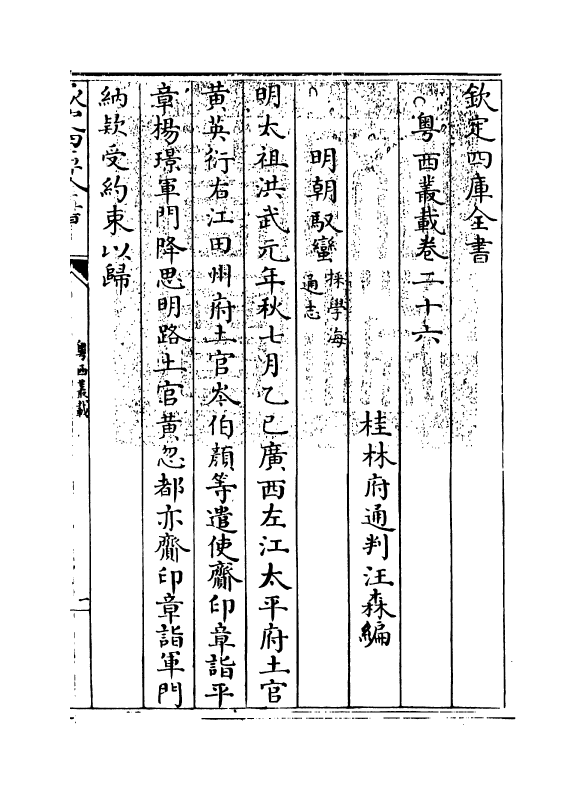 欽定四庫全書
粵西叢載卷二十六
桂林府通判汪森編
明朝馭蠻採學海
通志
明太祖洪武元年秋七月乙巳廣西左江太平府土官
黃英衍右江田州府土官岑伯顏等遣使齎印章詣平
章楊璟軍門降思明路土官黃忽都亦齎印章詣軍門
納款受約束以歸
粵西叢載